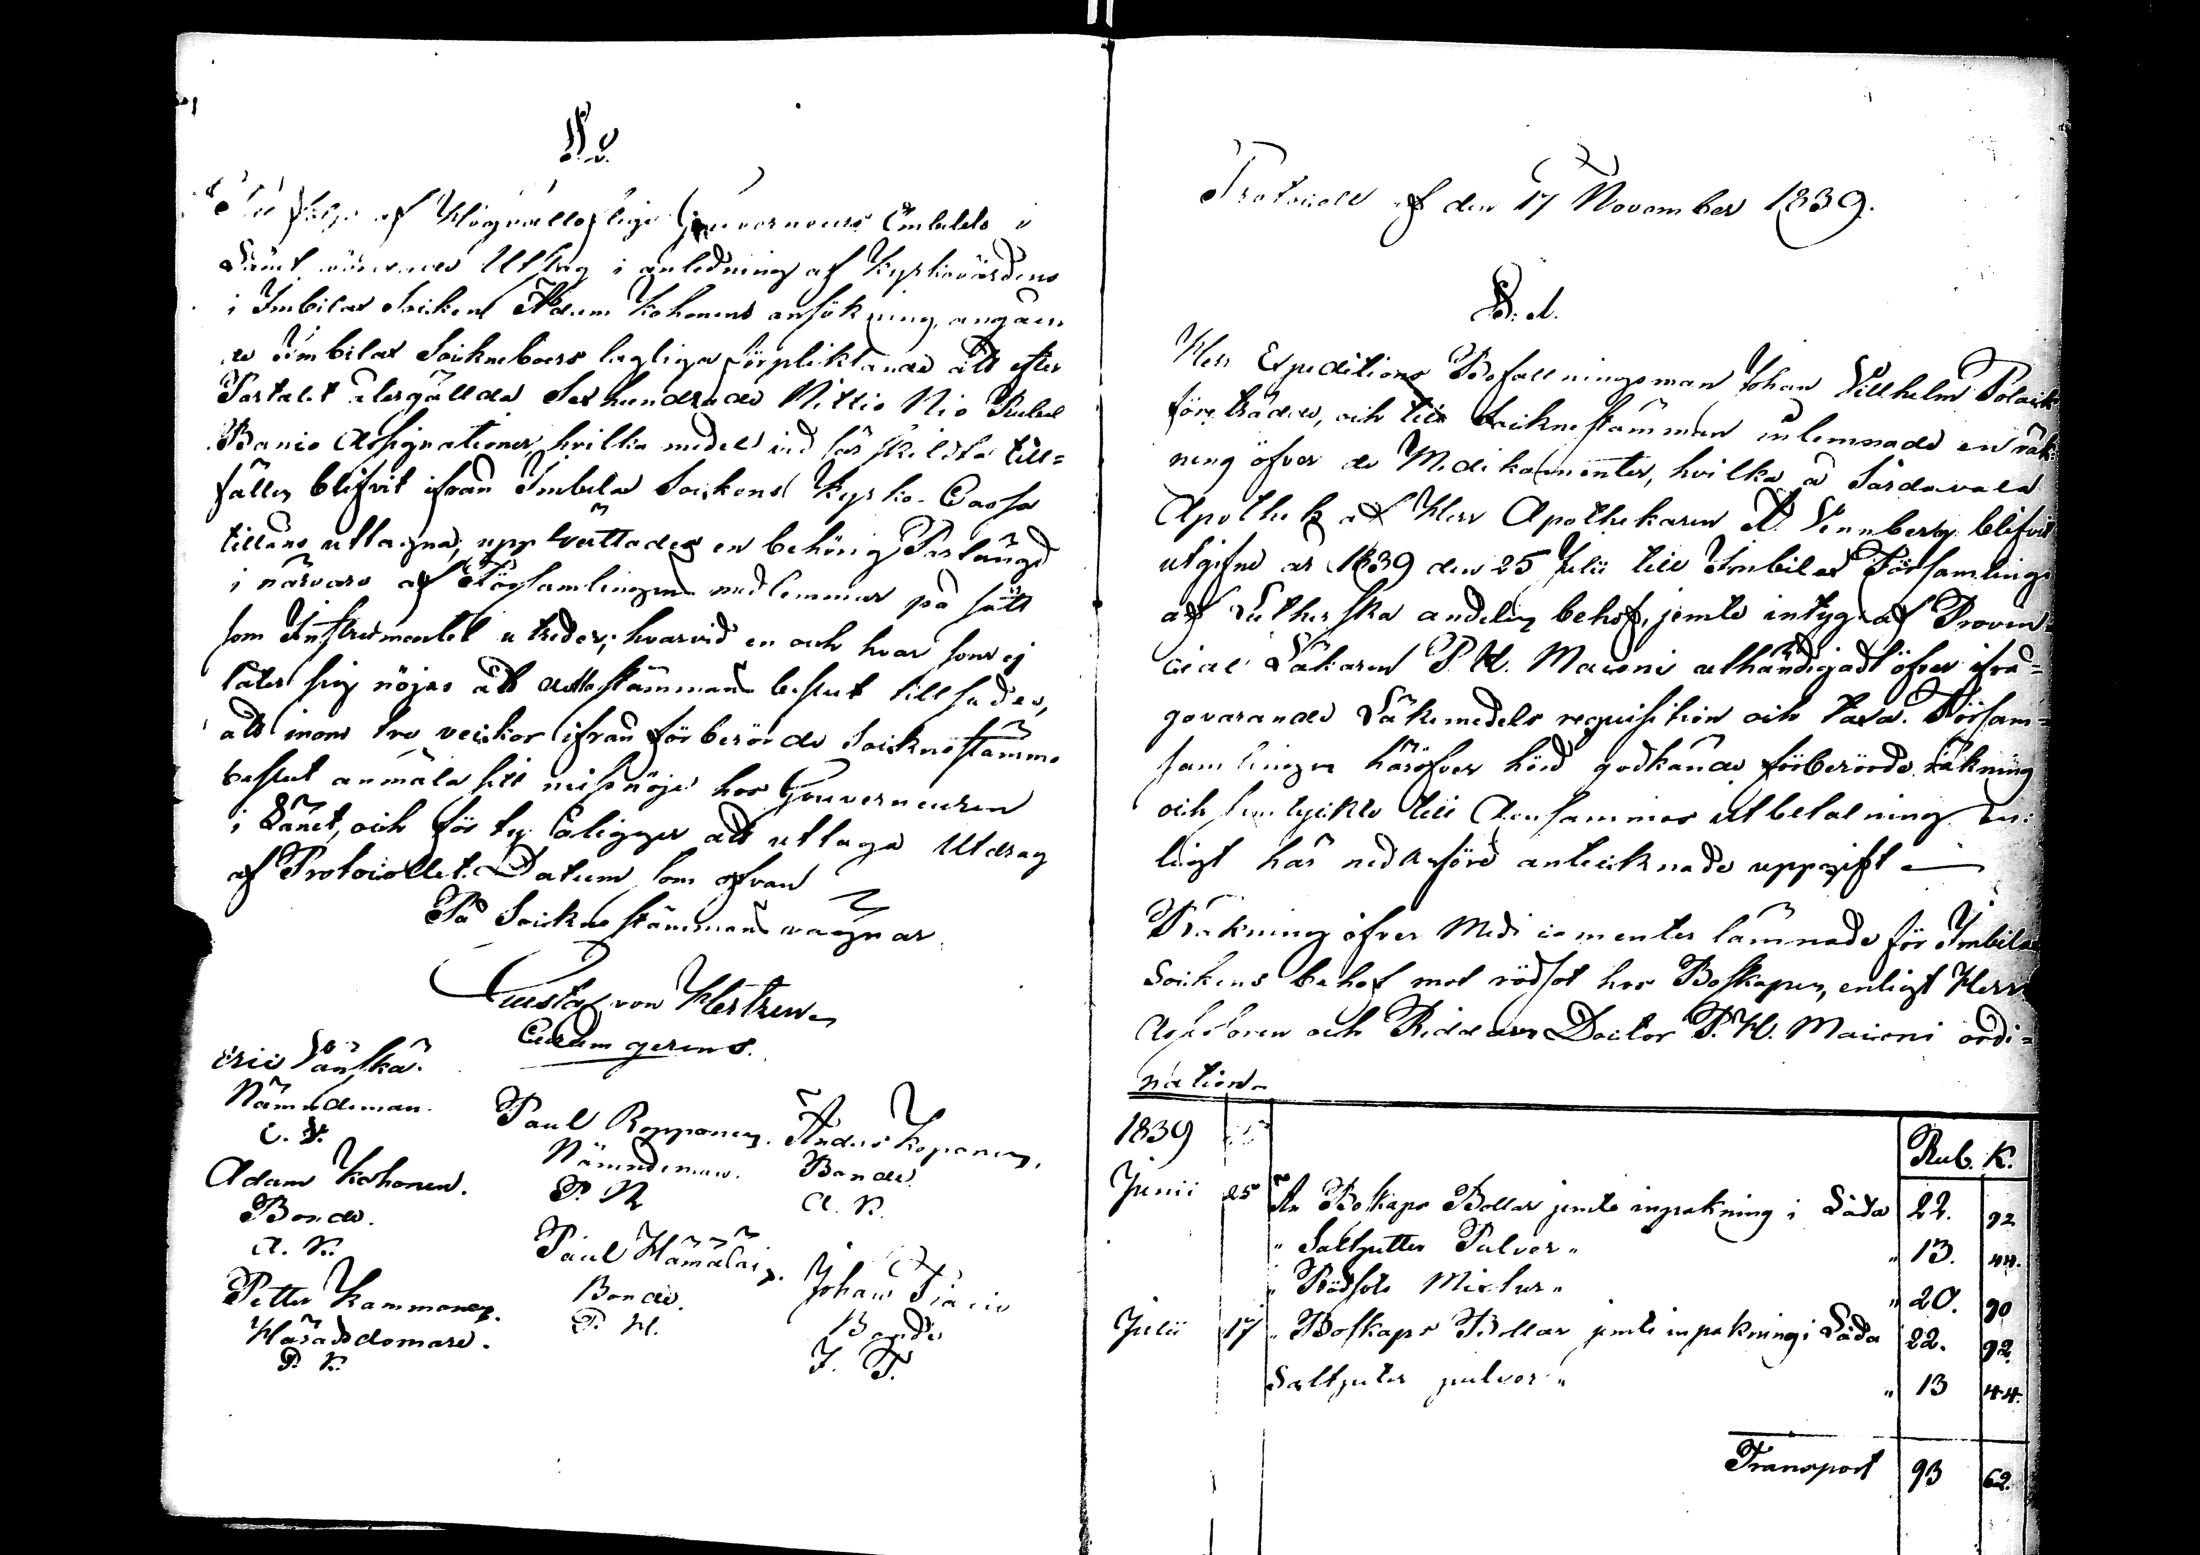 §. 2.
Till följe af Högvällofliga Gouverneurs Embetets i
Länet utslag i anledning af Kyrkovärdens
i Imbilax Socken Adam Kohonens ansökning, angåen
de Imbilax Sockneboers lagliga förpliktande att efter
Partalet återgällda Sexhundrade Nittio Nio Rubel
Banco Assignationer, hvilka medel vid särskildta till=
fällen blifvit ifrån Imbilax Sockens Kyrko-Cassa
tilláns uttagna, upprättades en behörig Parlängd
i närvaro af Församlingens medlemmar på sätt
som Instrumentet utreder; hvarvid en och hvar som ej
låter sig nöjas åt detta stämmans beslut tillsades,
att inom tre veckor ifrån förberörde Sockenstämmo
beslut anmäla sitt missnöje hos Gouverneuren
i Länet, och för ty åligger att uttaga Utdrag
af Protocollet. Datum som ofvan
På Sockne stämmans vägnar
Gustaf von Hertzen
Curam gerens.
Eric Länskä.
Nämndeman.
E. L.
Adam Kohonen.
Bonde.
A. K.
Petter Kammonen.
Häradsdomare.
P. K.
Paul Ropponen.
Nämndeman.
P. R
Paul Hämäläin.
Bonde.
P. H.
Anders Koponen.
Bonde.
A. K.
Johan
Bonde
J. T.
Protocoll af den 17 November 1839.
§. 1.
Herr Expeditions Befallningsman Johan Villhelm Polack
företrädde, och till Socknestämman inlemnade en räk=
ning öfver de Medikamenter, hvilka å Sårdavala
Apothek af Herr Apothekaren A. Vennberg blifvit
utgifne år 1839 den 25 Julii till Imbilax Församlings
af Lutherska andelen behof, jemte intyg af Provin=
cial Läkaren P. H. Maconi uthändigadt öfver ifrå=
gavarande Läkemedels requisition och Taxa. Försam=
samlingen häröfver hörd godkände förberörde räkning
och samtyckte till densammes utbetalning en=
ligt här nedanförd antecknade uppgift —
Räkning öfver Medicamenter lämnade för Imbilax
Sockens behof mot rödsot hos Boskapen, enligt Herr
Assessoren och Riddaren Doctor P. H. Maconi ordi=
nation
1839 Rub. K.
Junii 25 An Boskaps Bollar jemte inpakning i Låda 22. 92
" Saltpetter Pulver " " 13. 44.
" Rödsots Mixtur " " 20. 90
Julii 17 " Boskaps Bollar jemte inpakning i Låda 22. 92.
Saltpeter pulver " " 13 44.
Transport 93 62.